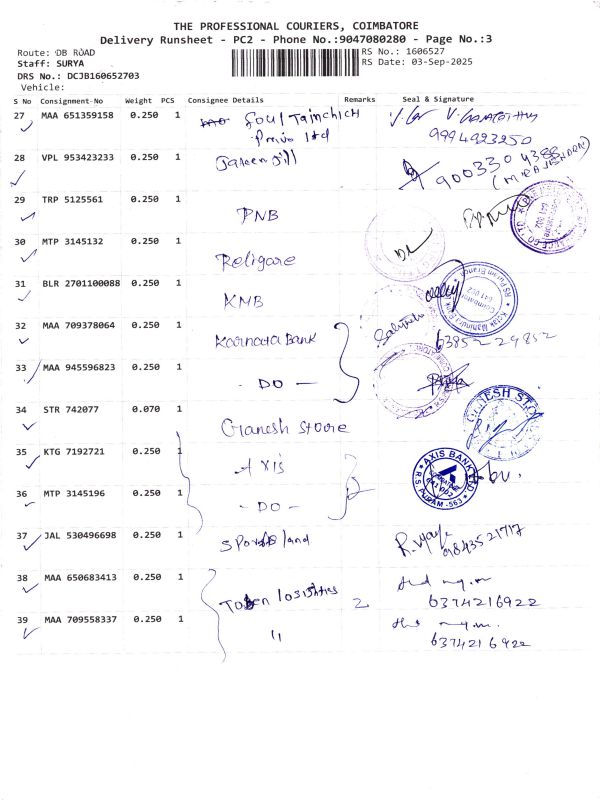 THE PROFESSIONAL COURIERS, COIMBATORE
Delivery Runsheet - PC2 - Phone No.:9047080280 - Page No.:3
Route: DB ROAD
RS No.: 1606527
Staff: SURYA
RS Date: 03-Sep-2025
DRS No.: DCJB160652703
Vehicle:
S No Consignment-No Weight PCS Consignee Details Remarks Seal & Signature
27 MAA 651359158 0.250 1 Soul Tainchich
Prvio ltd
9994923250
28 VPL 953423233 0.250 1
900330 4388
29 TRP 5125561 0.250 1 PNB
30 MTP 3145132 0.250 1 Religare
31 BLR 2701100088 0.250 1 KMB
32 MAA 709378064 0.250 1 Karnata Bank
63852-29852
33 MAA 945596823 0.250 1 - DO -
34 STR 742077 0.070 1 Ganesh Stoore
GANESH STORE
35 KTG 7192721 0.250 1 Axis
AXIS BANK LTD
R.S. PURAM -563
36 MTP 3145196 0.250 1 - DO -
37 JAL 530496698 0.250 1 Sports land
9843521717
38 MAA 650683413 0.250 1 Token losishties 2
6374216922
39 MAA 709558337 0.250 1 "
6374216922